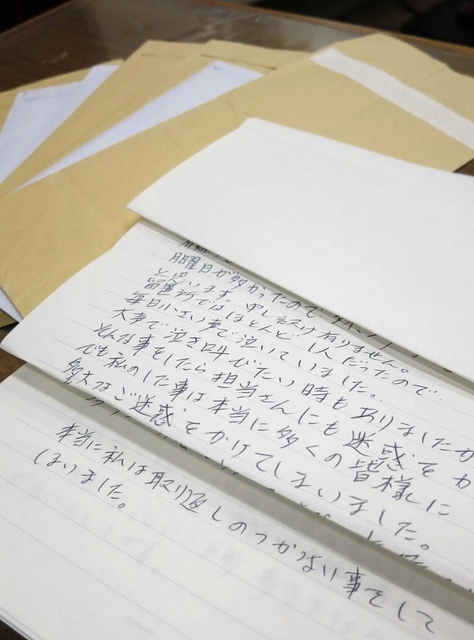 曜日が多かったので
と思います。申し訳け有りません。
留置所ではほとんど1人だったので
毎日小さい声で泣いていました。
大声で泣き叫びたい時もありましたが
そんな事をしたら担当さんにも迷惑をか
でも私のした事は本当に多くの皆様に
多大なご迷惑をかけてしまいました。
本当に私は取り返しのつかない事をして
しまいました。